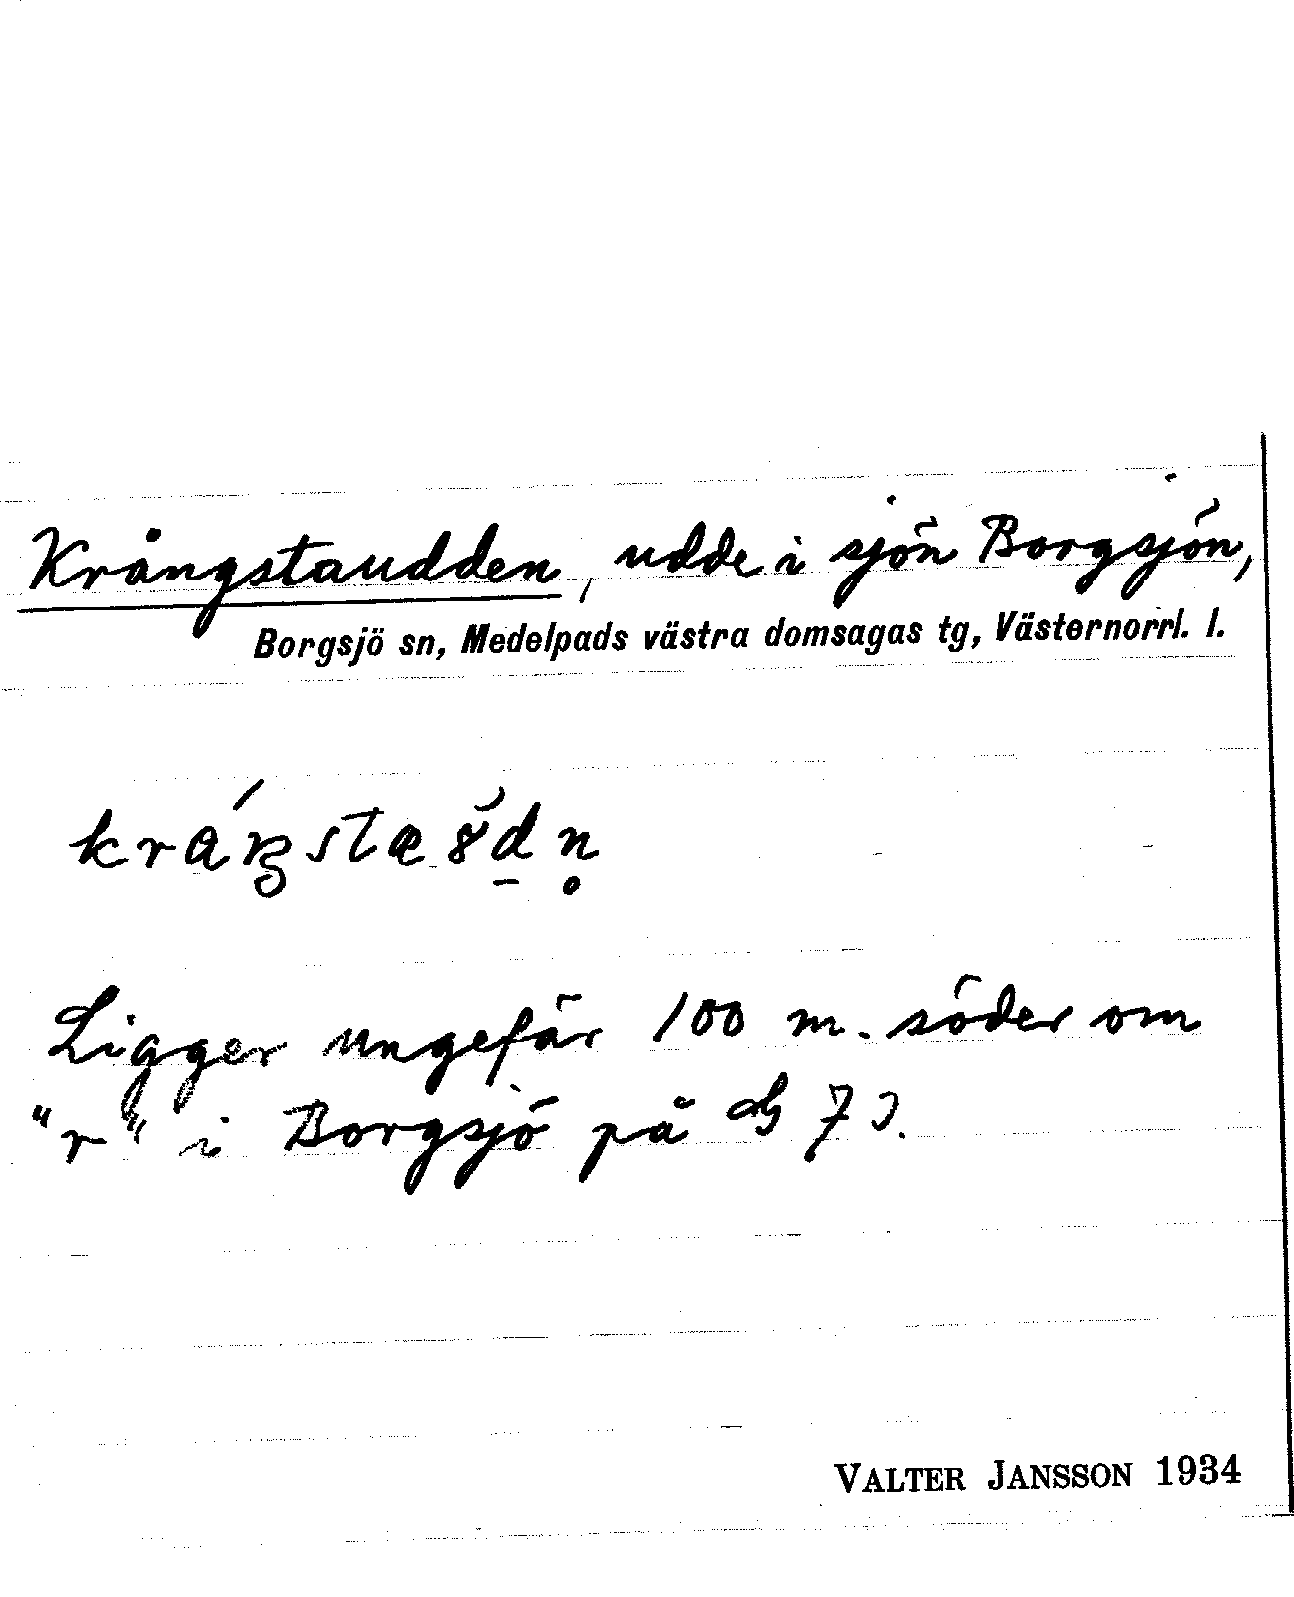 Krångstaudden, udde i sjön Borgsjön,
Borgsjö sn, Medelpads västra domsagas tg, Västernorrl. l.
Ligger ungefär 100 m. söder om
"r" i Borgsjö på
VALTER JANSSON 1934